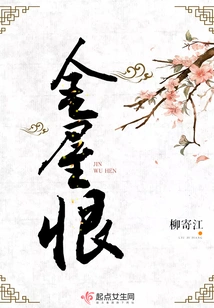 金屋恨
JIN
WU HEN
柳寄江
起点女生网